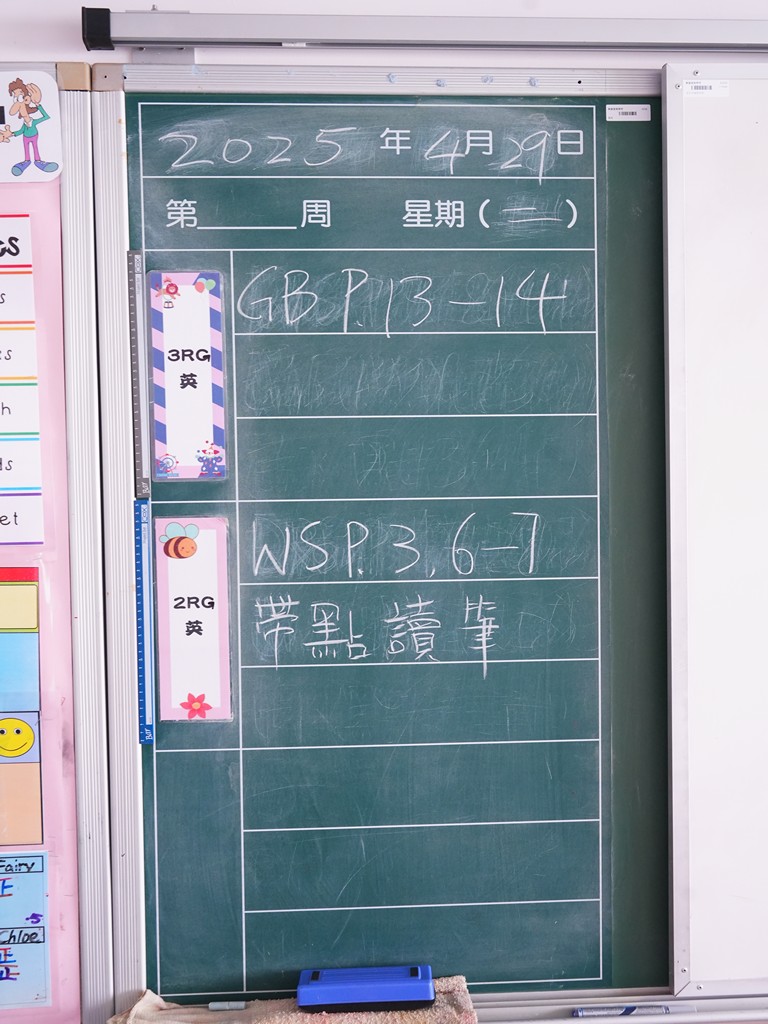 2025 年 4 月 29 日
第______周 星期(二)
3RG
英
GB P.13-14
2RG
英
WS P.3, 6-7
帶點讀筆
Fairy
-5
Chloe
正
正